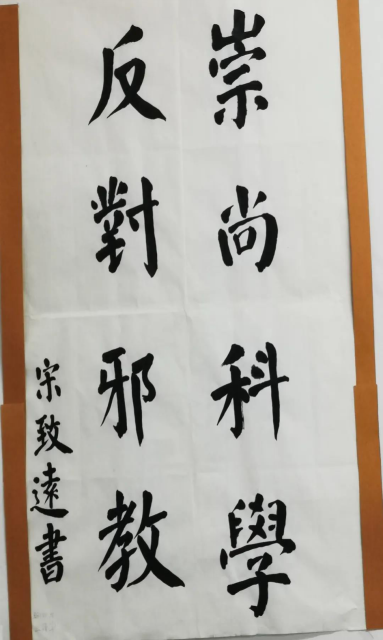 崇尚科學
反對邪教
宋致遠書